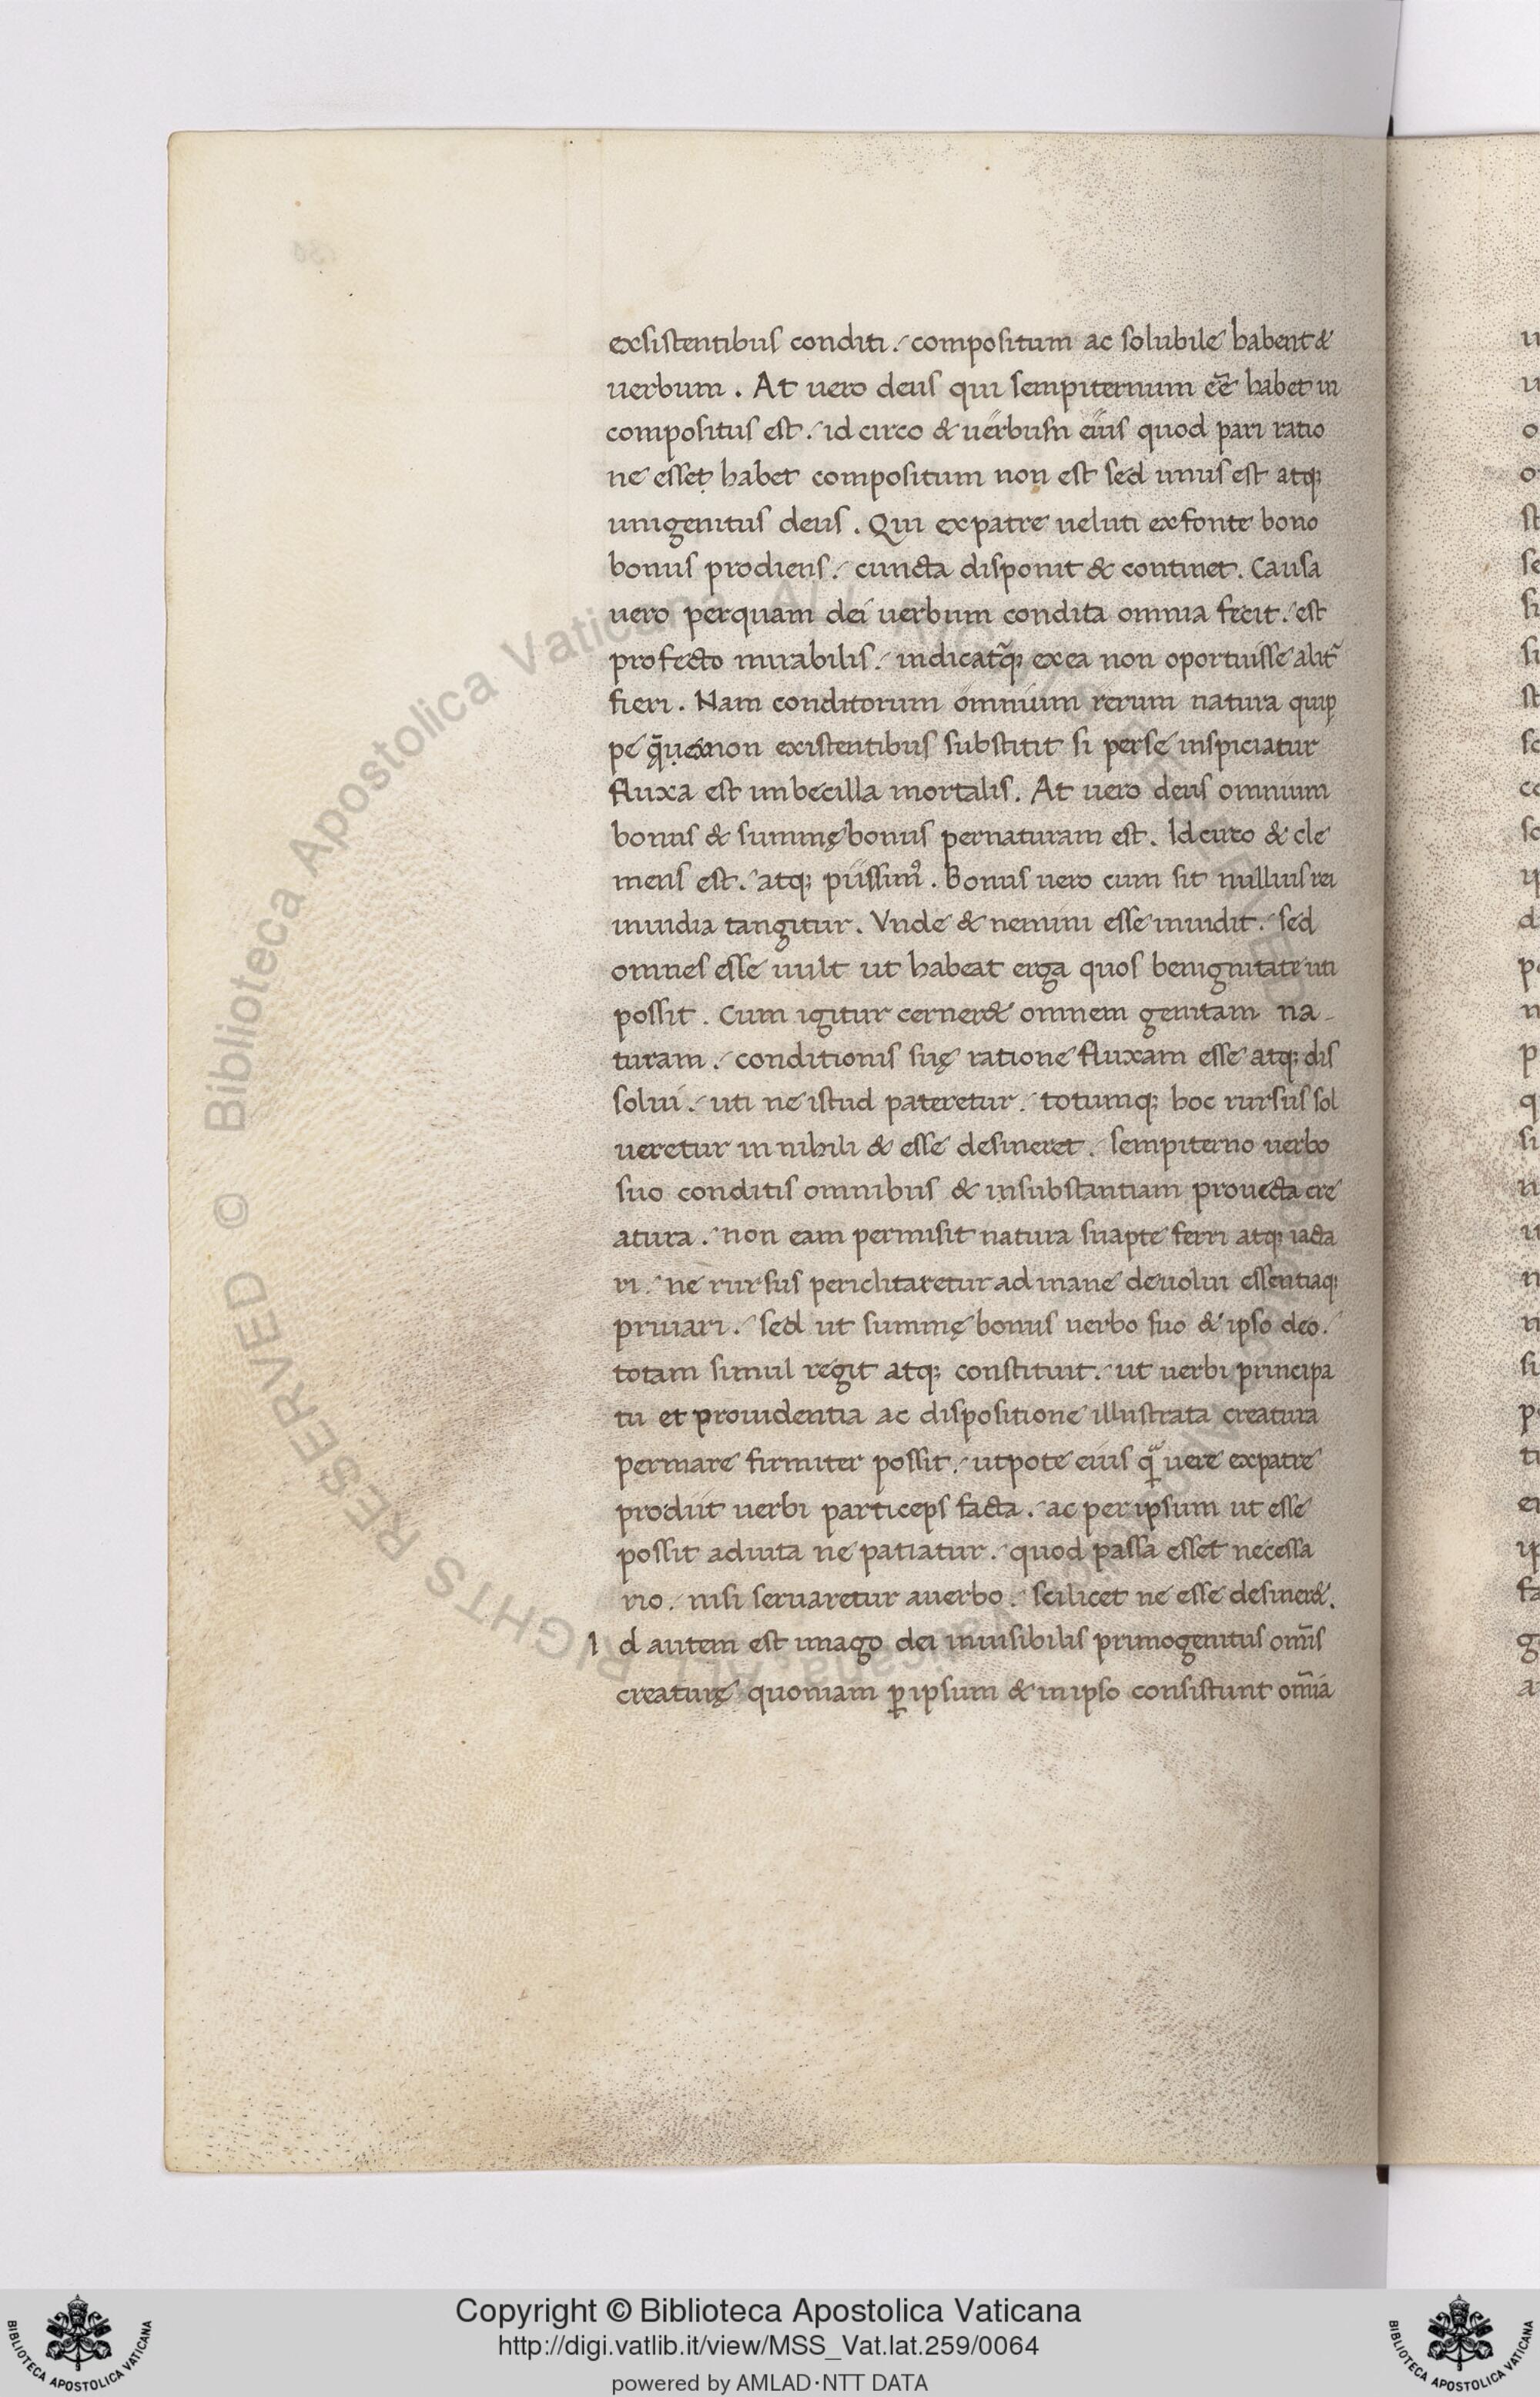 exsistentibus conditi. compositum ac solubile habent &
uerbum. At uero deus qui sempiternum eẽ habet in
compositus est. id circo & uerbum eius quod pari ratio
ne esset habet compositum non est sed unus est atq;
unigenitus deus. Qui expatre ueluti exfonte bono
bonus prodiens. cuncta disponit & continet. Causa
uero perquam dei uerbum condita omnia fecit. est
profecto mirabilis. indicatq; exea non oportuisse alit᷑
fieri. Nam conditorum omnium rerum natura quip
pe non existentibus substitit si perse inspiciatur
fluxa est imbecilla mortalis. At uero deus omnium
bonus & summę bonus pernaturam est. Idcirco & cle
mens est. atq; piissim᷒. Bonus uero cum sit nullius rei
inuidia tangitur. Vnde & nemini esse inuidit. sed
omnes esse uult ut habeat erga quos benignitate uti
possit. Cum igitur cerner& omnem genitam na-
turam. conditionis suę ratione fluxam esse atq; dis
solui. uti ne istud pateretur. totumq; hoc rursus sol
ueretur in nihili & esse desineret. sempiterno uerbo
suo conditis omnibus & insubstantiam prouecta cre
atura. non eam permisit natura suapte ferri atq; iacta
ri. ne rursus periclitaretur ad inane deuolui essentiaq;
priuari. sed ut summę bonus uerbo suo & ipso deo.
totam simul regit atq; constituit. ut uerbi principa
tu et prouidentia ac dispositione illustrata creatura
permare firmiter possit. utpote eius uere expatre
prodiit uerbi particeps facta. ac per ipsum ut esse
possit adiuta ne patiatur. quod passa esset necessa
rio. nisi seruaretur auerbo. scilicet ne esse desiner&.
I d autem est imago dei inuisibilis primogenitus om̃is
creaturę quoniam ꝑ ipsum & inipso consistunt om̃ia
Copyright © Biblioteca Apostolica Vaticana
http://digi.vatlib.it/view/MSS_Vat.lat.259/0064
powered by AMLAD·NTT DATA